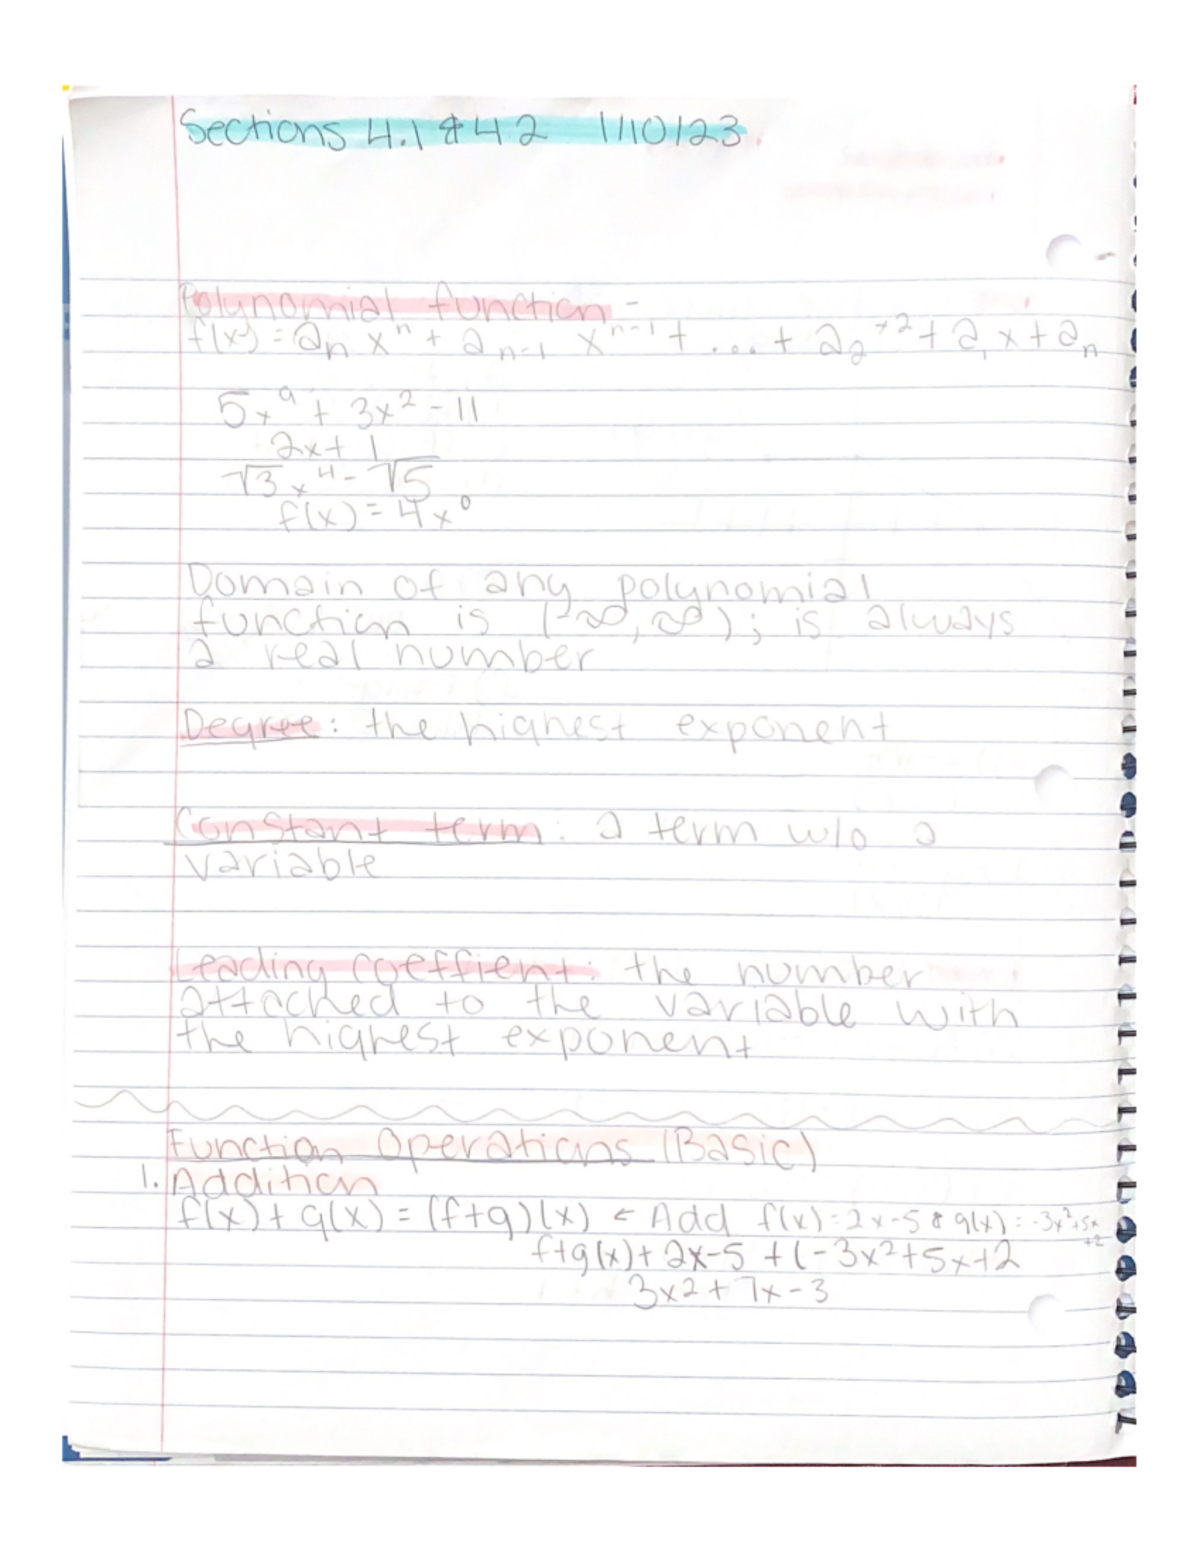 Sections 4.1 & 4.2 1/10/23
Polynomial function -
f(x) = aₙ xⁿ + aₙ₋₁ xⁿ⁻¹ + ... + a₂ x² + a₁ x + aₙ
5x⁹ + 3x² - 11
2x + 1
√3 x⁴ - √5
f(x) = 4x⁰
Domain of any polynomial
function is (-∞, ∞); is always
a real number
Degree: the highest exponent
Constant term: a term w/o a
variable
Leading coeffient: the number
attached to the variable with
the highest exponent
Function Operations (Basic)
1. Addition
f(x) + g(x) = (f+g)(x) ← Add f(x) = 2x-5 & g(x) = -3x²+5x+2
f+g(x) + 2x-5 + (-3x²+5x+2
3x2 + 7x - 3